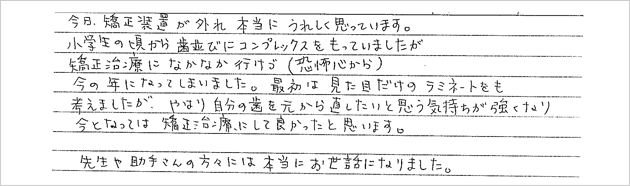 今日、矯正装置が外れ本当にうれしく思っています。
小学生の頃から歯並びにコンプレックスをもっていましたが
矯正治療になかなか行けず(恐怖心から)
今の年になってしまいました。最初は見た目だけのラミネートをも
考えましたが、やはり自分の歯を元から直したいと思う気持ちが強くなり
今となっては矯正治療にして良かったと思います。
先生や助手さんの方々には本当にお世話になりました。